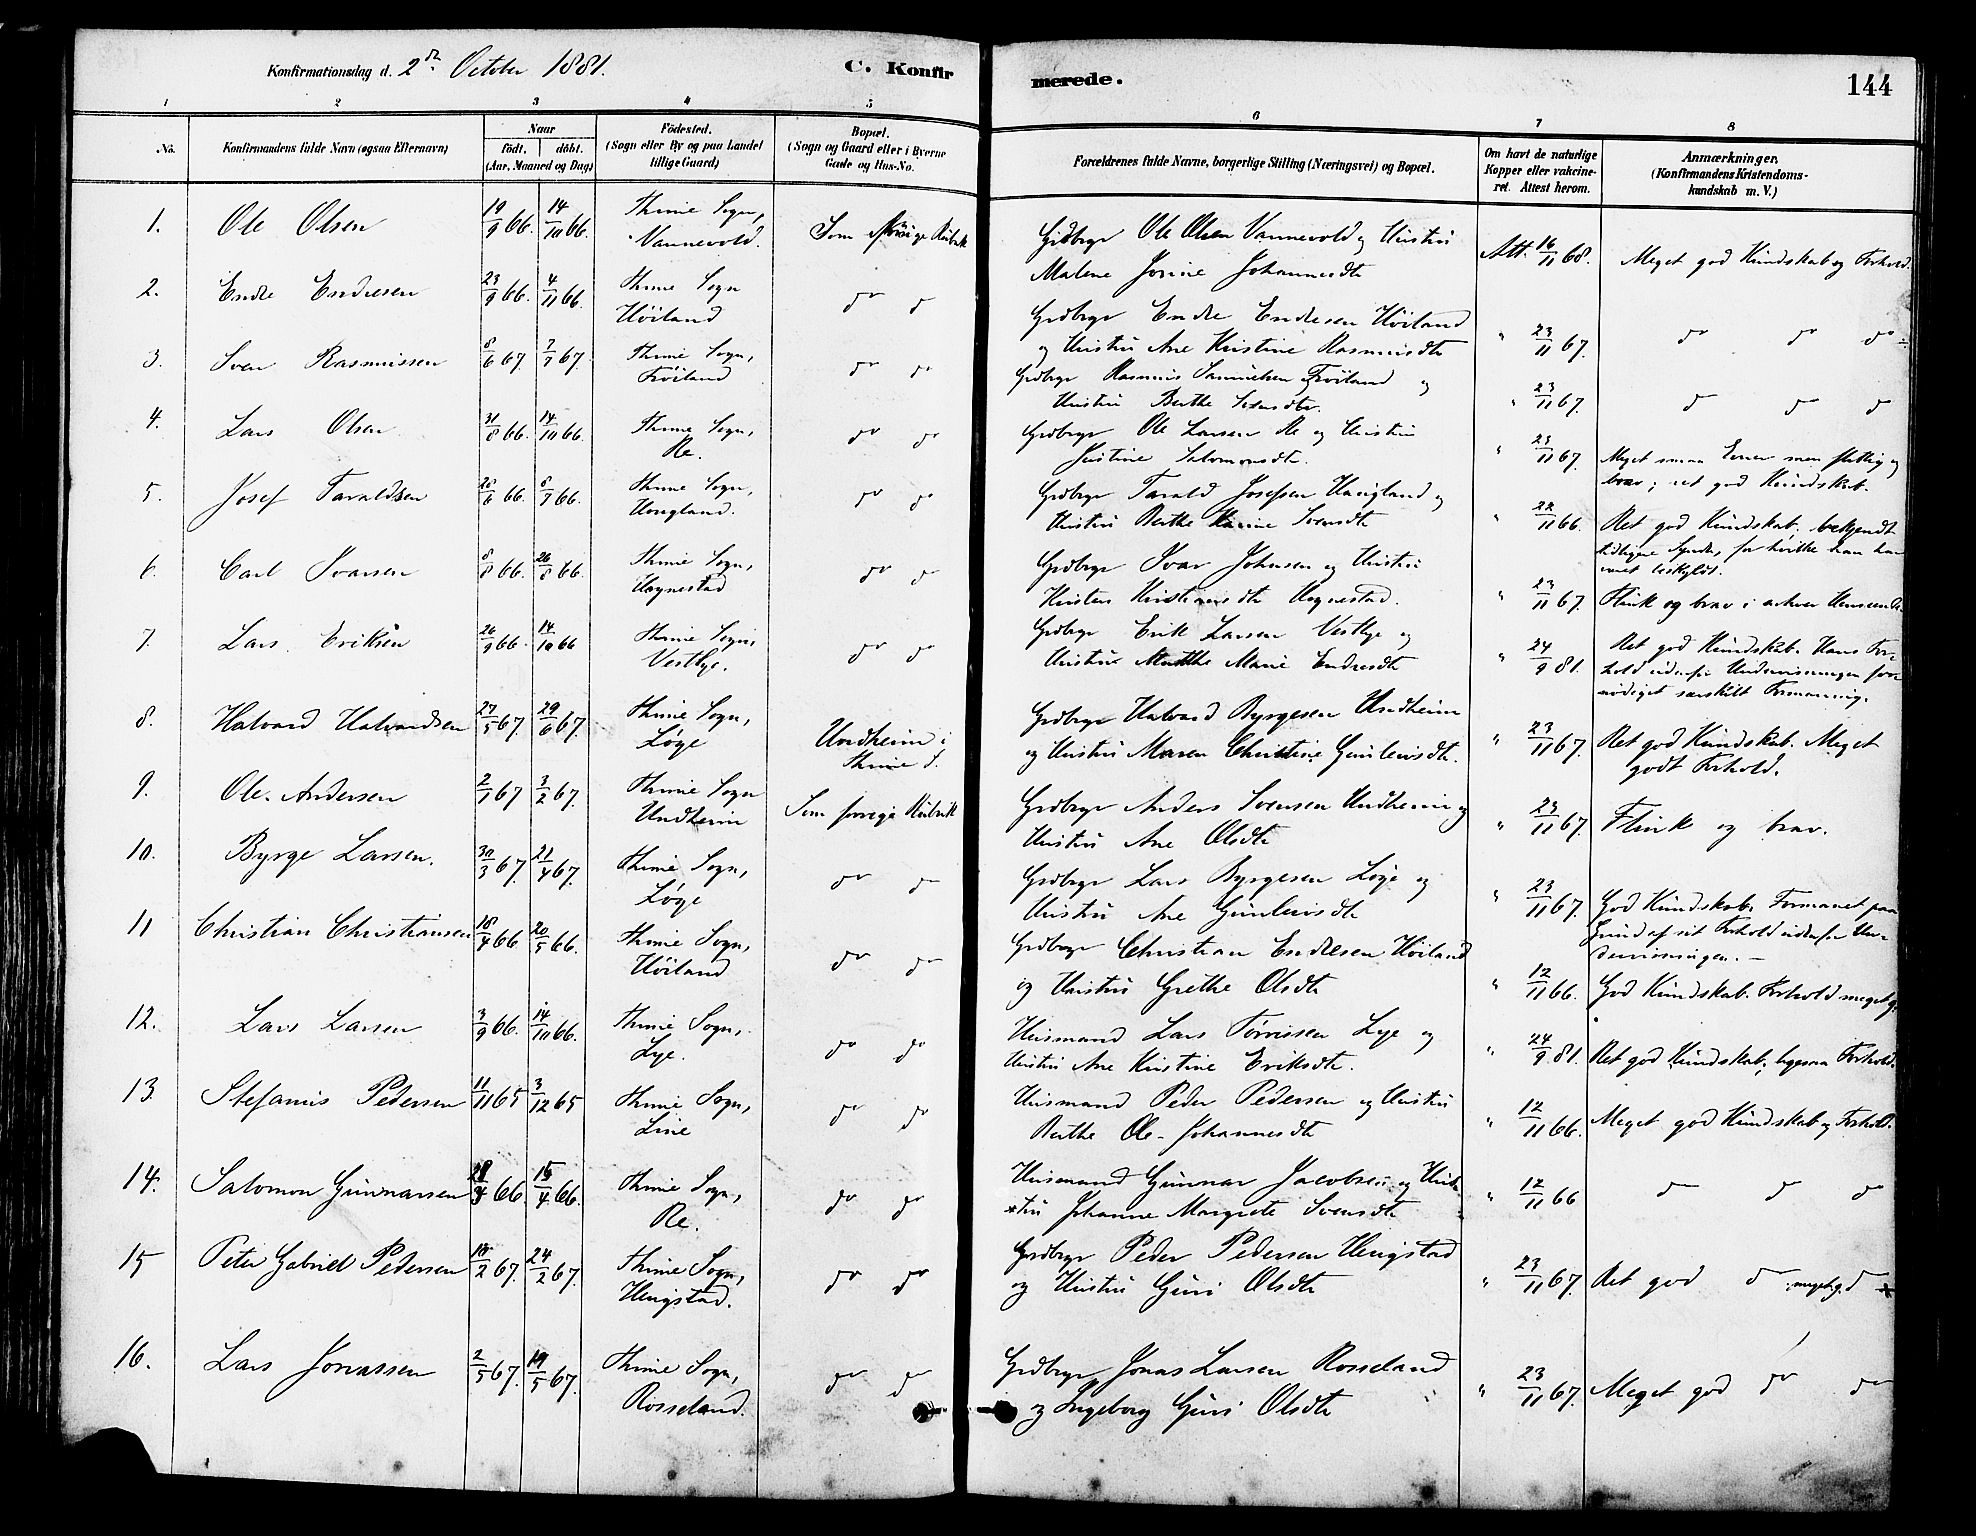 Konfirmationsdag d. 2den October 1881.
C. Konfir
merede.
144
1 2 3 4 5 6 7 8
No.
Konfirmandens fulde Navn (ogsaa Efternavn)
Naar
födt. döbt.
(Aar, Maaned og Dag)
Födested.
(Sogn eller By og paa Landet
tillige Gaard)
Bopæl.
(Sogn og Gaard eller i Byerne
Gade og Hus-No.
Forældrenes fulde Navne, borgerlige Stilling (Næringsvei) og Bopæl.
Om havt de naturlige
Kopper eller vakcine-
ret. Attest herom.
Anmærkninger.
(Konfirmandens Kristendoms-
kundskab m. V.)
1. Ole Olsen 19/9 66. 14/10 66. Thime Sogn, Som forrige Rubrik
Vannevold.
Grdbrgr Ole Olsen Vannevold og Hustru
Malene Jorine Johannesdtr
Att. 16/11 68. Meget god Kundskab og Forhold.
2. Endre Endresen 23/9 66. 4/11 66. Thime Sogn do do
Höiland
Grdbrgr Endre Endresen Höiland
og Hustru Ane Kristine Rasmusdtr
" 23/11 67. do do do
3. Sven Rasmussen 8/6 67. 7/7 67. Thime Sogn, do do
Fröiland
Grdbrgr Rasmus Samuelsen Fröiland og
Hustru Berthe Svensdtr.
" 23/11 67. do do do
4. Lars Olsen 31/8 66. 14/10 66. Thime Sogn, do do
Re.
Grdbrgr Ole Larsen Re og Hustru
Justine Salomonsdtr.
" 23/11 67. Meget smaa Evner men flittig og
brav; ret god Kundskab.
5. Josef Taraldsen 66. 8/7 66. Thime Sogn, do do
Haugland.
Grdbrgr Tarald Josefsen Haugland og
Hustru Berthe Karine Svensdtr
" 22/11 66. Ret god Kundskab. bekjendt
tidligere Synder, for hvilke han har
været beskyldt.
6. Carl Ivarsen 8/8 66. 26/8 66. Thime Sogn, do do
Hognestad
Grdbrgr Ivar Johnsen og Hustru
Kirsten Kristiansdtr Hognestad.
" 23/11 67. Flink og brav i enhver Henseende
7. Lars Eriksen 26/9 66. 14/10 66 Thime Sogn, do do
Vestlye.
Grdbrgr Erik Larsen Vestlye og
Hustru Marthe Marie Endresdtr
" 24/9 81. Ret god Kundskab. Hans For-
hold udenfor Undervisningen for-
nödiget særskilt Formaning.
8. Halvard Halvardsen 27/5 67. 29/6 67. Thime Sogn, Undheim i
Løge Thime S.
Grdbrgr Halvard Byrgesen Undheim
og Hustru Maren Christine Gunleivsdtr.
" 23/11 67. Ret god Kundskab. Meget
godt Forhold.
9. Ole Andersen 2/1 67 3/2 67. Thime Sogn Som forrige Rubrik
Undheim
Grdbrgr Anders Svensen Undheim og
Hustru Ane Olsdtr
" 23/11 67. Flink og brav.
10. Byrge Larsen. 30/3 67. 21/4 67. Thime Sogn, do do
Løge
Grdbrgr Lars Byrgesen Løge og
Hustru Ane Gunleivsdtr
" 23/11 67. God Kundskab. Formanet paa
Grund af sit Forhold udenfor Un-
dervisningen.
11 Christian Christiansen 18/4 66 20/5 66. Thime Sogn, do do
Höiland
Grdbrgr Christian Endresen Höiland
og Hustru Grethe Olsdtr
" 12/11 66. God Kundskab. Forhold meget g.
12. Lars Larsen 3/9 66. 14/10 66. Thime Sogn, do do
Lye.
Husmand Lars Tørrissen Lye og
Hustru Ane Kristine Eriksdtr.
" 24/9 81. Ret god Kundskab; ligesaa Forhold.
13. Stefanus Pedersen 11/11 65 3/12 65 Thime Sogn, do do
Line
Husmand Peder Pedersen og Hustru
Berthe Ole- Johannesdtr
" 12/11 66. Meget god Kundskab og Forhold.
14. Salomon Gunnarsen 66. 15/4 66. Thime Sogn, do do
Re.
Husmand Gunnar Jacobsen og Hu-
stru Johanne Margrete Svensdtr
" 12/11 66 do do do
15 Peter Gabriel Pedersen /2 67. 24/2 67. Thime Sogn, do do
Hengstad.
Grdbrgr Peder Pedersen Hengstad
og Hustru Guri Olsdtr
" 23/11 67. Ret god do meget g. do
16. Lars Jonassen 2/5 67. 19/5 67. Thime Sogn, do do
Rosseland.
Grdbrgr Jonas Larsen Rosseland
og Ingeborg Guri Olsdtr
" 23/11 67. Meget god do do